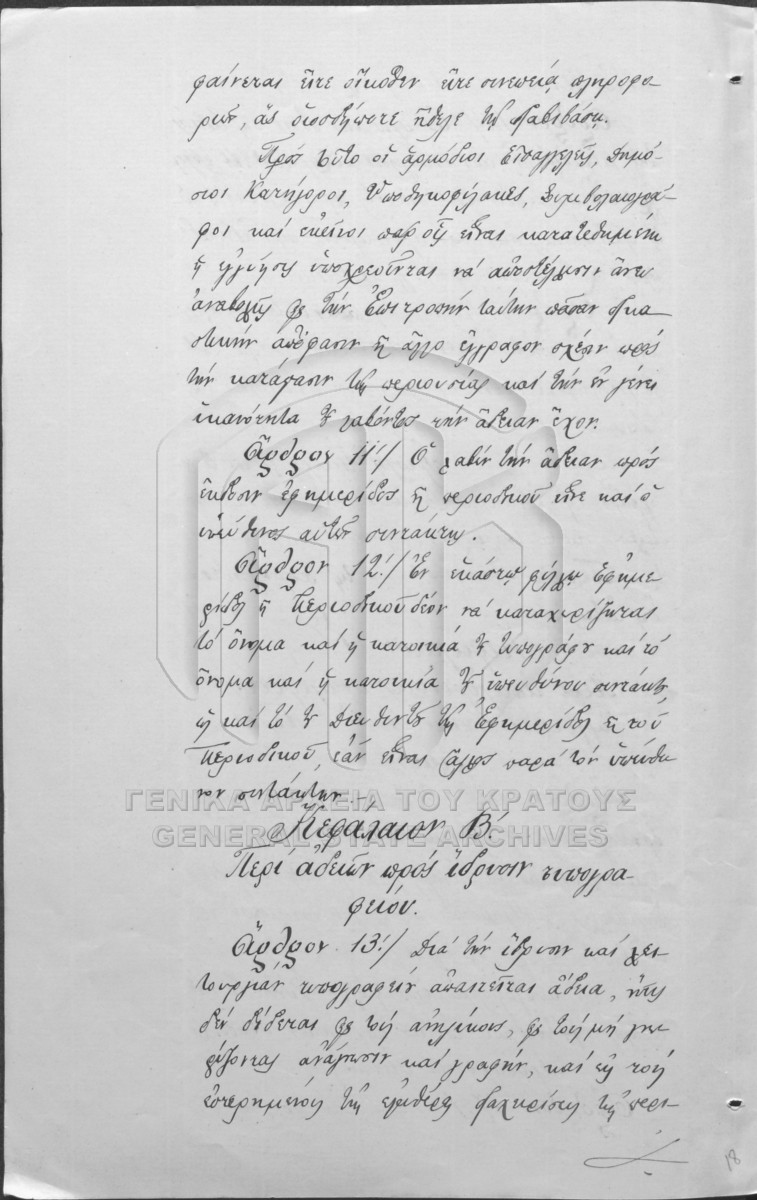 φαίνεται εἴτε οἴκοθεν εἴτε συνεπείᾳ πληροφο-
ριῶν, ἃς ὁπωσδήποτε ἤθελε τῇ διαβιβάσῃ.
Πρὸς τοῦτο οἱ ἁρμόδιοι Εἰσαγγελεῖς, Δημό-
σιοι Κατήγοροι, Ὑποθηκοφύλακες, Συμβολαιογρά-
φοι καὶ ἐκεῖνοι παρ' οἷς εἶναι κατατεθημένη
ἡ ἐγγύησις ὑποχρεοῦνται νὰ ἀποστέλλωσιν ἄνευ
ἀναβολῆς εἰς τὴν Ἐπιτροπὴν ταύτην πᾶσαν δικα-
στικὴν ἀπόφασιν ἢ ἄλλο ἔγγραφον σχέσιν πρὸς
τὴν κατάστασιν τῆς περιουσίας καὶ τὴν ἐν γένει
ἱκανότητα τοῦ λαβόντος τὴν ἄδειαν ἔχον.
Ἄρθρον 11./ Ὁ λαβὼν τὴν ἄδειαν πρὸς
ἔκδοσιν ἐφημερίδος ἢ περιοδικοῦ εἶνε καὶ ὁ
ὑπεύθυνος αὐτῶν συντάκτης.
Ἄρθρον 12./ Ἐν ἑκάστῳ φύλλῳ Ἐφημε-
ρίδος ἢ Περιοδικοῦ δέον νὰ καταχωρίζωνται
τὸ ὄνομα καὶ ἡ κατοικία τοῦ τυπογράφου καὶ τὸ
ὄνομα καὶ ἡ κατοικία τοῦ ὑπευθύνου συντάκτου
ὡς καὶ τὸ τοῦ Διευθυντοῦ τῆς Ἐφημερίδος ἢ τοῦ
Περιοδικοῦ, ἐὰν εἶναι ἄλλος παρὰ τὸν ὑπεύθυ-
νον συντάκτην.—
ΓΕΝΙΚΑ ΑΡΧΕΙΑ ΤΟΥ ΚΡΑΤΟΥΣ
GENERAL STATE ARCHIVES
Κεφάλαιον Β'.
Περὶ ἀδειῶν πρὸς ἵδρυσιν τυπογρα-
φείου.
Ἄρθρον 13./ Διὰ τὴν ἵδρυσιν καὶ λει-
τουργίαν τυπογραφείων ἀπαιτεῖται ἄδεια, ἥτις
δὲν δίδεται εἰς τοὺς ἀνηλίκους, εἰς τοὺς μὴ γνω-
ρίζοντας ἀνάγνωσιν καὶ γραφήν, καὶ εἰς τοὺς
ἐστερημένους τῆς ἐλευθέρας διαχειρίσεως τῆς περι-
18